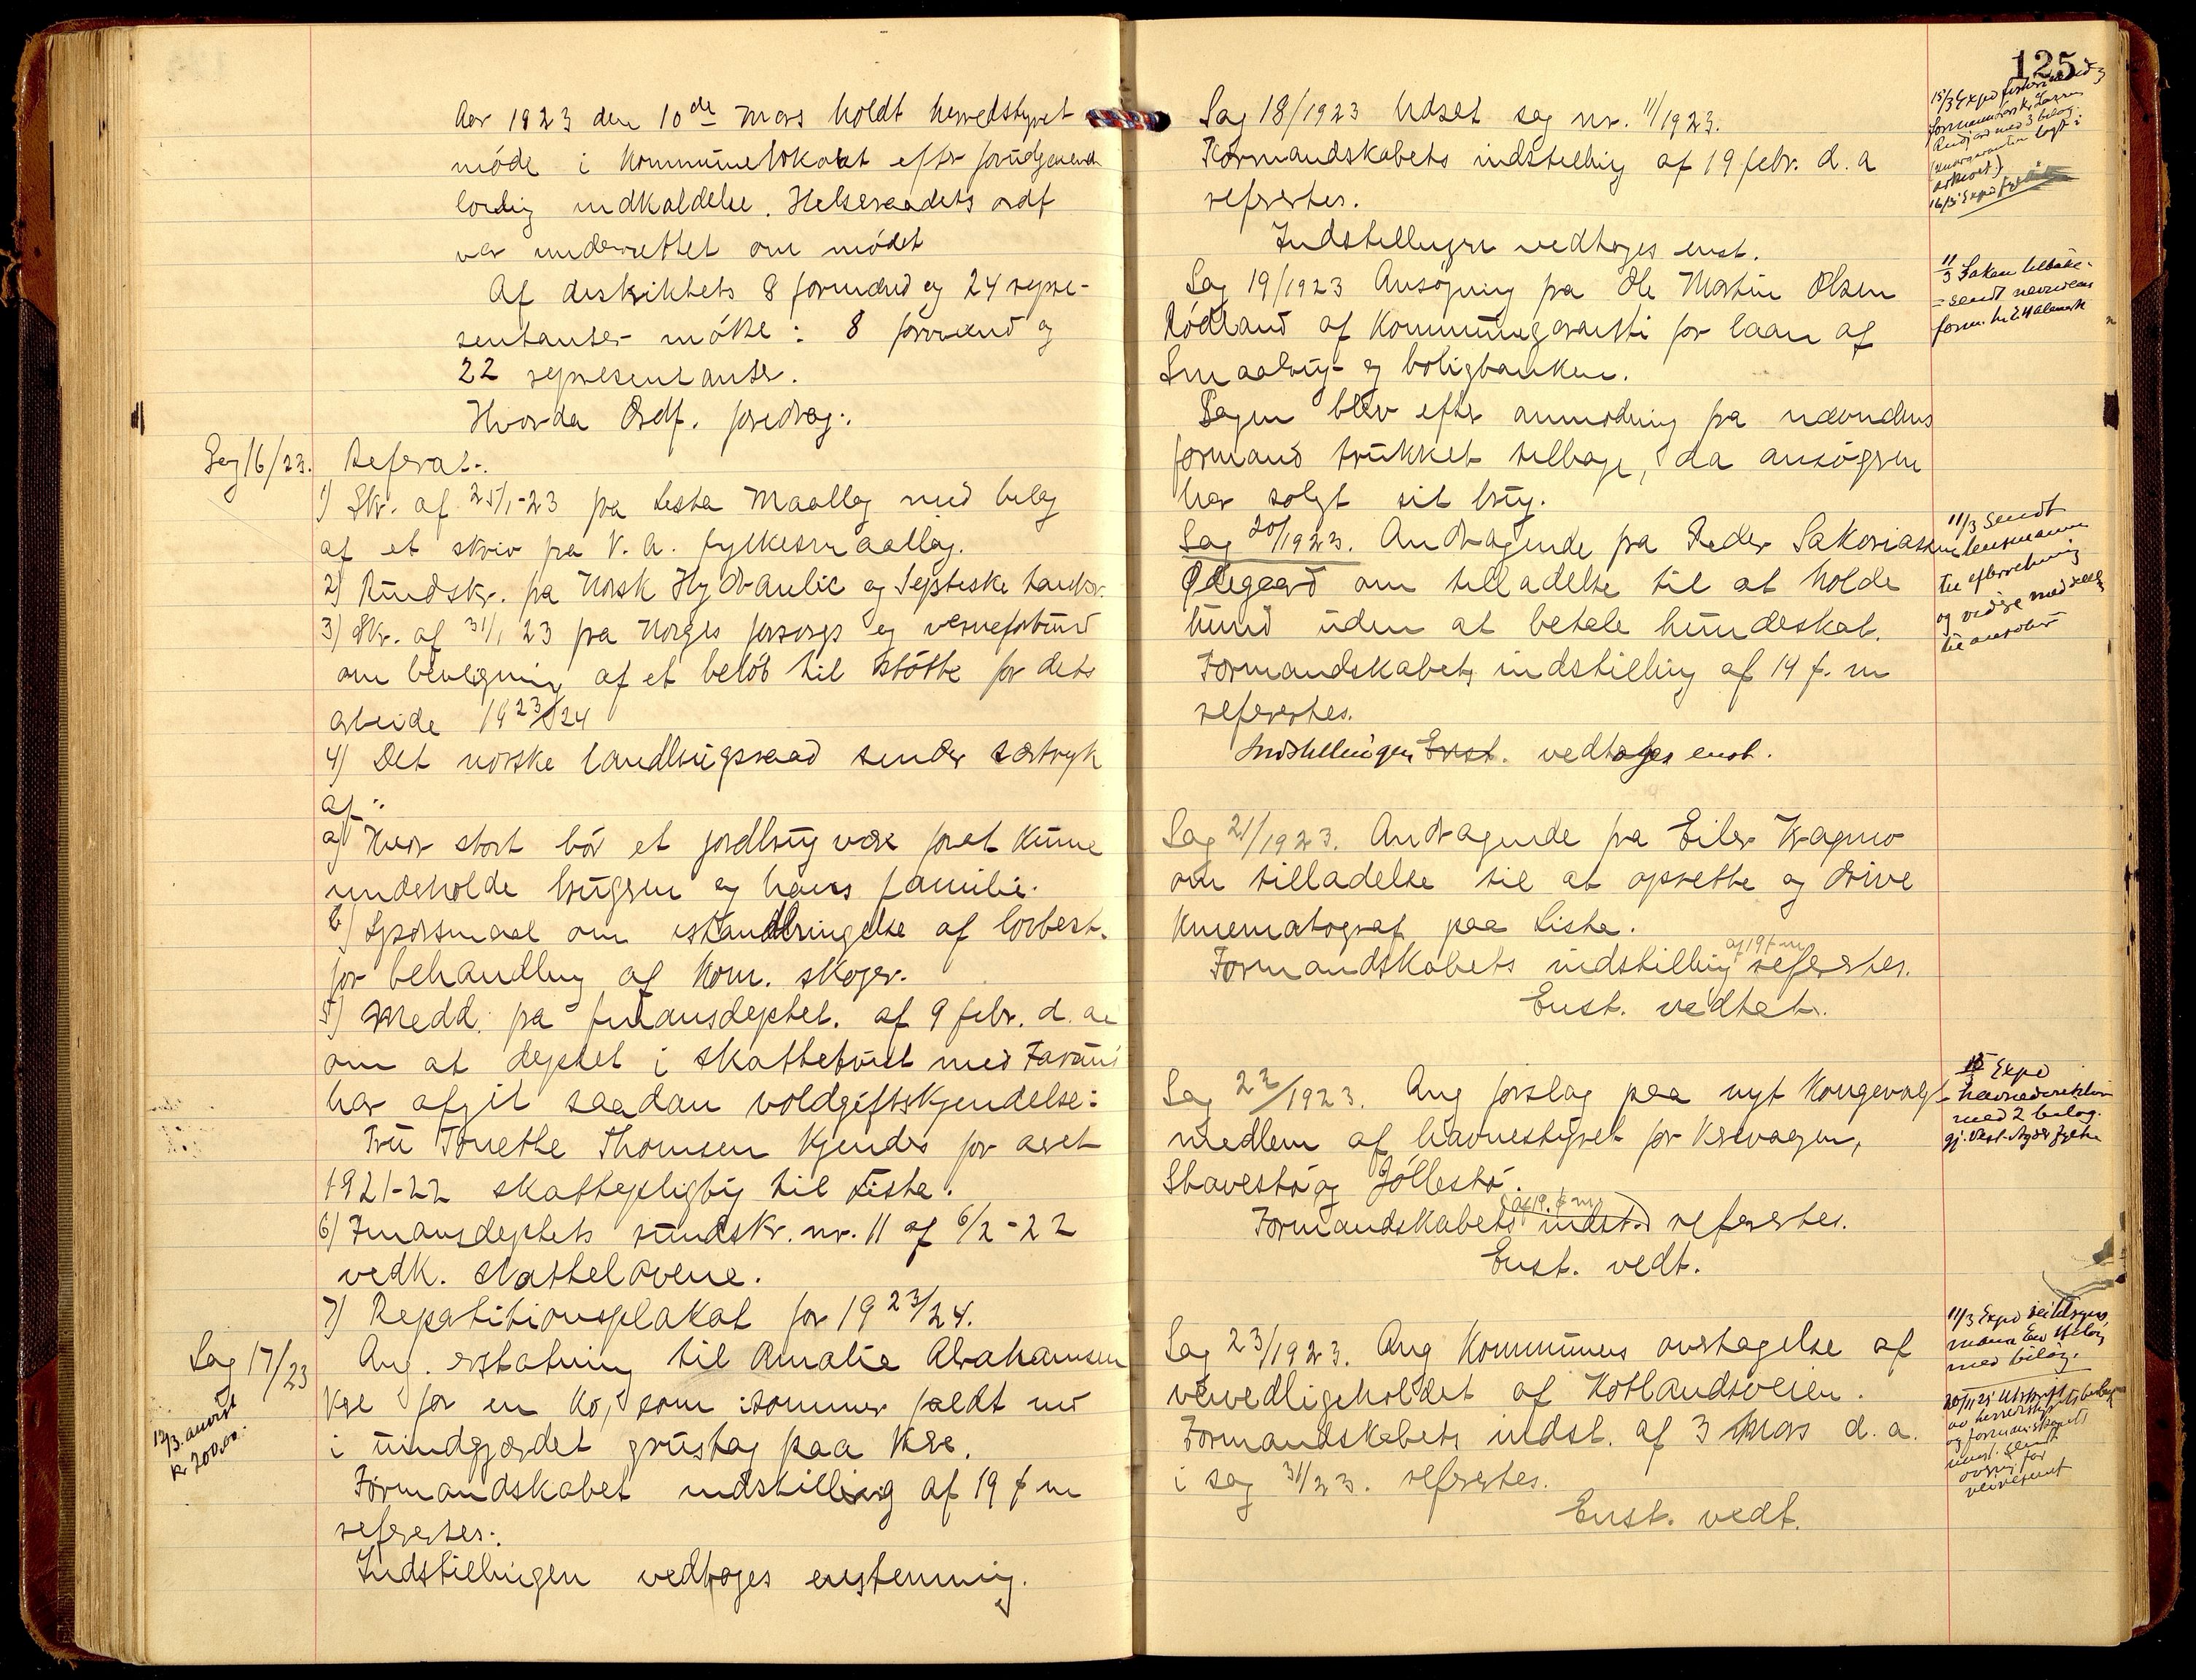 Aar 1923 den 10de Mars holdt herredstyret
møde i Kommunelokalet efter forudgaaende
lovlig indkaldelse. Helseraadets ordf
var underrettet om mødet
Af distriktets 8 formænd og 24 repre-
sentanter møtte: 8 formænd og
22 representanter.
Hvorda Ordf. foredrog:
Sag 16/23. Referat.
1) Skr. af 25/1-23 fra Lista Maallag med bilag
af et skriv fra V. A. fylkesmaallag.
2) Rundskr. fra Norsk Hydraulic og Septiske tanker.
3) Skr. af 31/1 23 fra Norges forsorgs og verneforbund
om bevilgning af et beløb til støtte for dets
arbeide 1923/24
4) Det norske landbrugsraad sender særtryk
af:
a) Hvor stort bør et jordbrug være for at kunne
underholde brugeren og hans familie.
b) Spørsmaal om istandbringelse af lovbest.
for behandling af kom. skoger.
5) Medd. fra finansdeptet. af 9 febr. d. a
om at deptet i skattetvist med Farsund
har afgit saadan voldgiftskjendelse:
Fru Tonette Thomsen kjendes for aaret
1921-22 skattepligtig til Lista.
6) Finansdeptets rundskr. nr. 11 af 6/2-22
vedk. skattelovene.
7) Repatitionsplakat for 1923/24.
Sag 17/23 Ang. erstatning til Amalie Abrahamsen
Kre for en ko, som isommer faldt ned
i uindgjærdet grustag paa Kre.
12/3. anvist
kr 200,00.
Formandskabet indstilling af 19 f m
refereres.
Indstillingen vedtoges enstemmig.
125
Sag 18/1923 Udsat sag nr. 11/1923.
Formandskabets indstilling af 19 febr. d. a
refereres.
Indstillingen vedtoges enst.
Sag 19/1923 Ansøgning fra Ole Martin Olsen
Rødland af Kommunegaranti for laan af
Smaabrug- og boligbanken.
Sagen blev efter anmodning fra nævndens
formand trukket tilbage, da ansøgeren
har solgt sit brug.
11/3 Saken tilbake-
sendt nævndens
form.
Sag 20/1923. Andragende fra Peder Sakariassen
Ødegaard om tilladelse til at holde
hund uden at betale hundeskat.
Formandskabets indstilling af 14 f. m
refereres.
Indstillingen Enst. vedtages enst.
11/3 sendt
lensmannen
til efterretning
og videre meddelelse
til ansøker
Sag 21/1923. Andragende fra Eiler Kragmo
om tilladelse til at oprette og drive
Kinematograf paa Lista.
Formandskabets indstilling af 19 f m refereres.
Enst. vedtat.
Sag 22/1923. Ang forslag paa nyt Kongevalgt
medlem af havnestyret for Krevaagen,
Stavestø og Jøllestø.
Formandskabets indst. af 19. f m refereres.
Enst. vedt.
Expd
havnedirektøren
med 2 bilag.
gj. Vest-Agder fylke
Sag 23/1923. Ang Kommunens overtagelse af
veivedligeholdet af Kotlandsveien.
Formandskabets indst. af 3 Mars d. a.
i sag 31/23. refereres.
Enst. vedt.
11/3 Expd
med bilag.
20/11 23 Utskrift
av herredstyrets
og formannskapets
innst. sendt